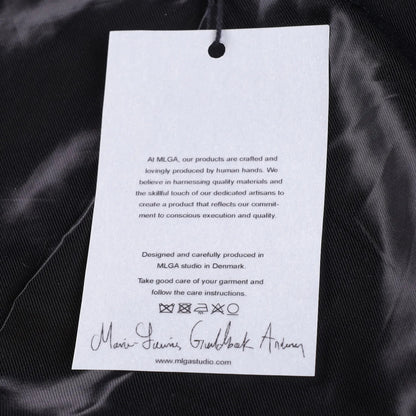 At MLGA, our products are crafted and
lovingly produced by human hands. We
believe in harnessing quality materials and
the skillful touch of our dedicated artisans to
create a product that reflects our commit-
ment to conscious execution and quality.
Designed and carefully produced in
MLGA studio in Denmark.
Take good care of your garment and
follow the care instructions.
Marie-Louise
www.mlgastudio.com